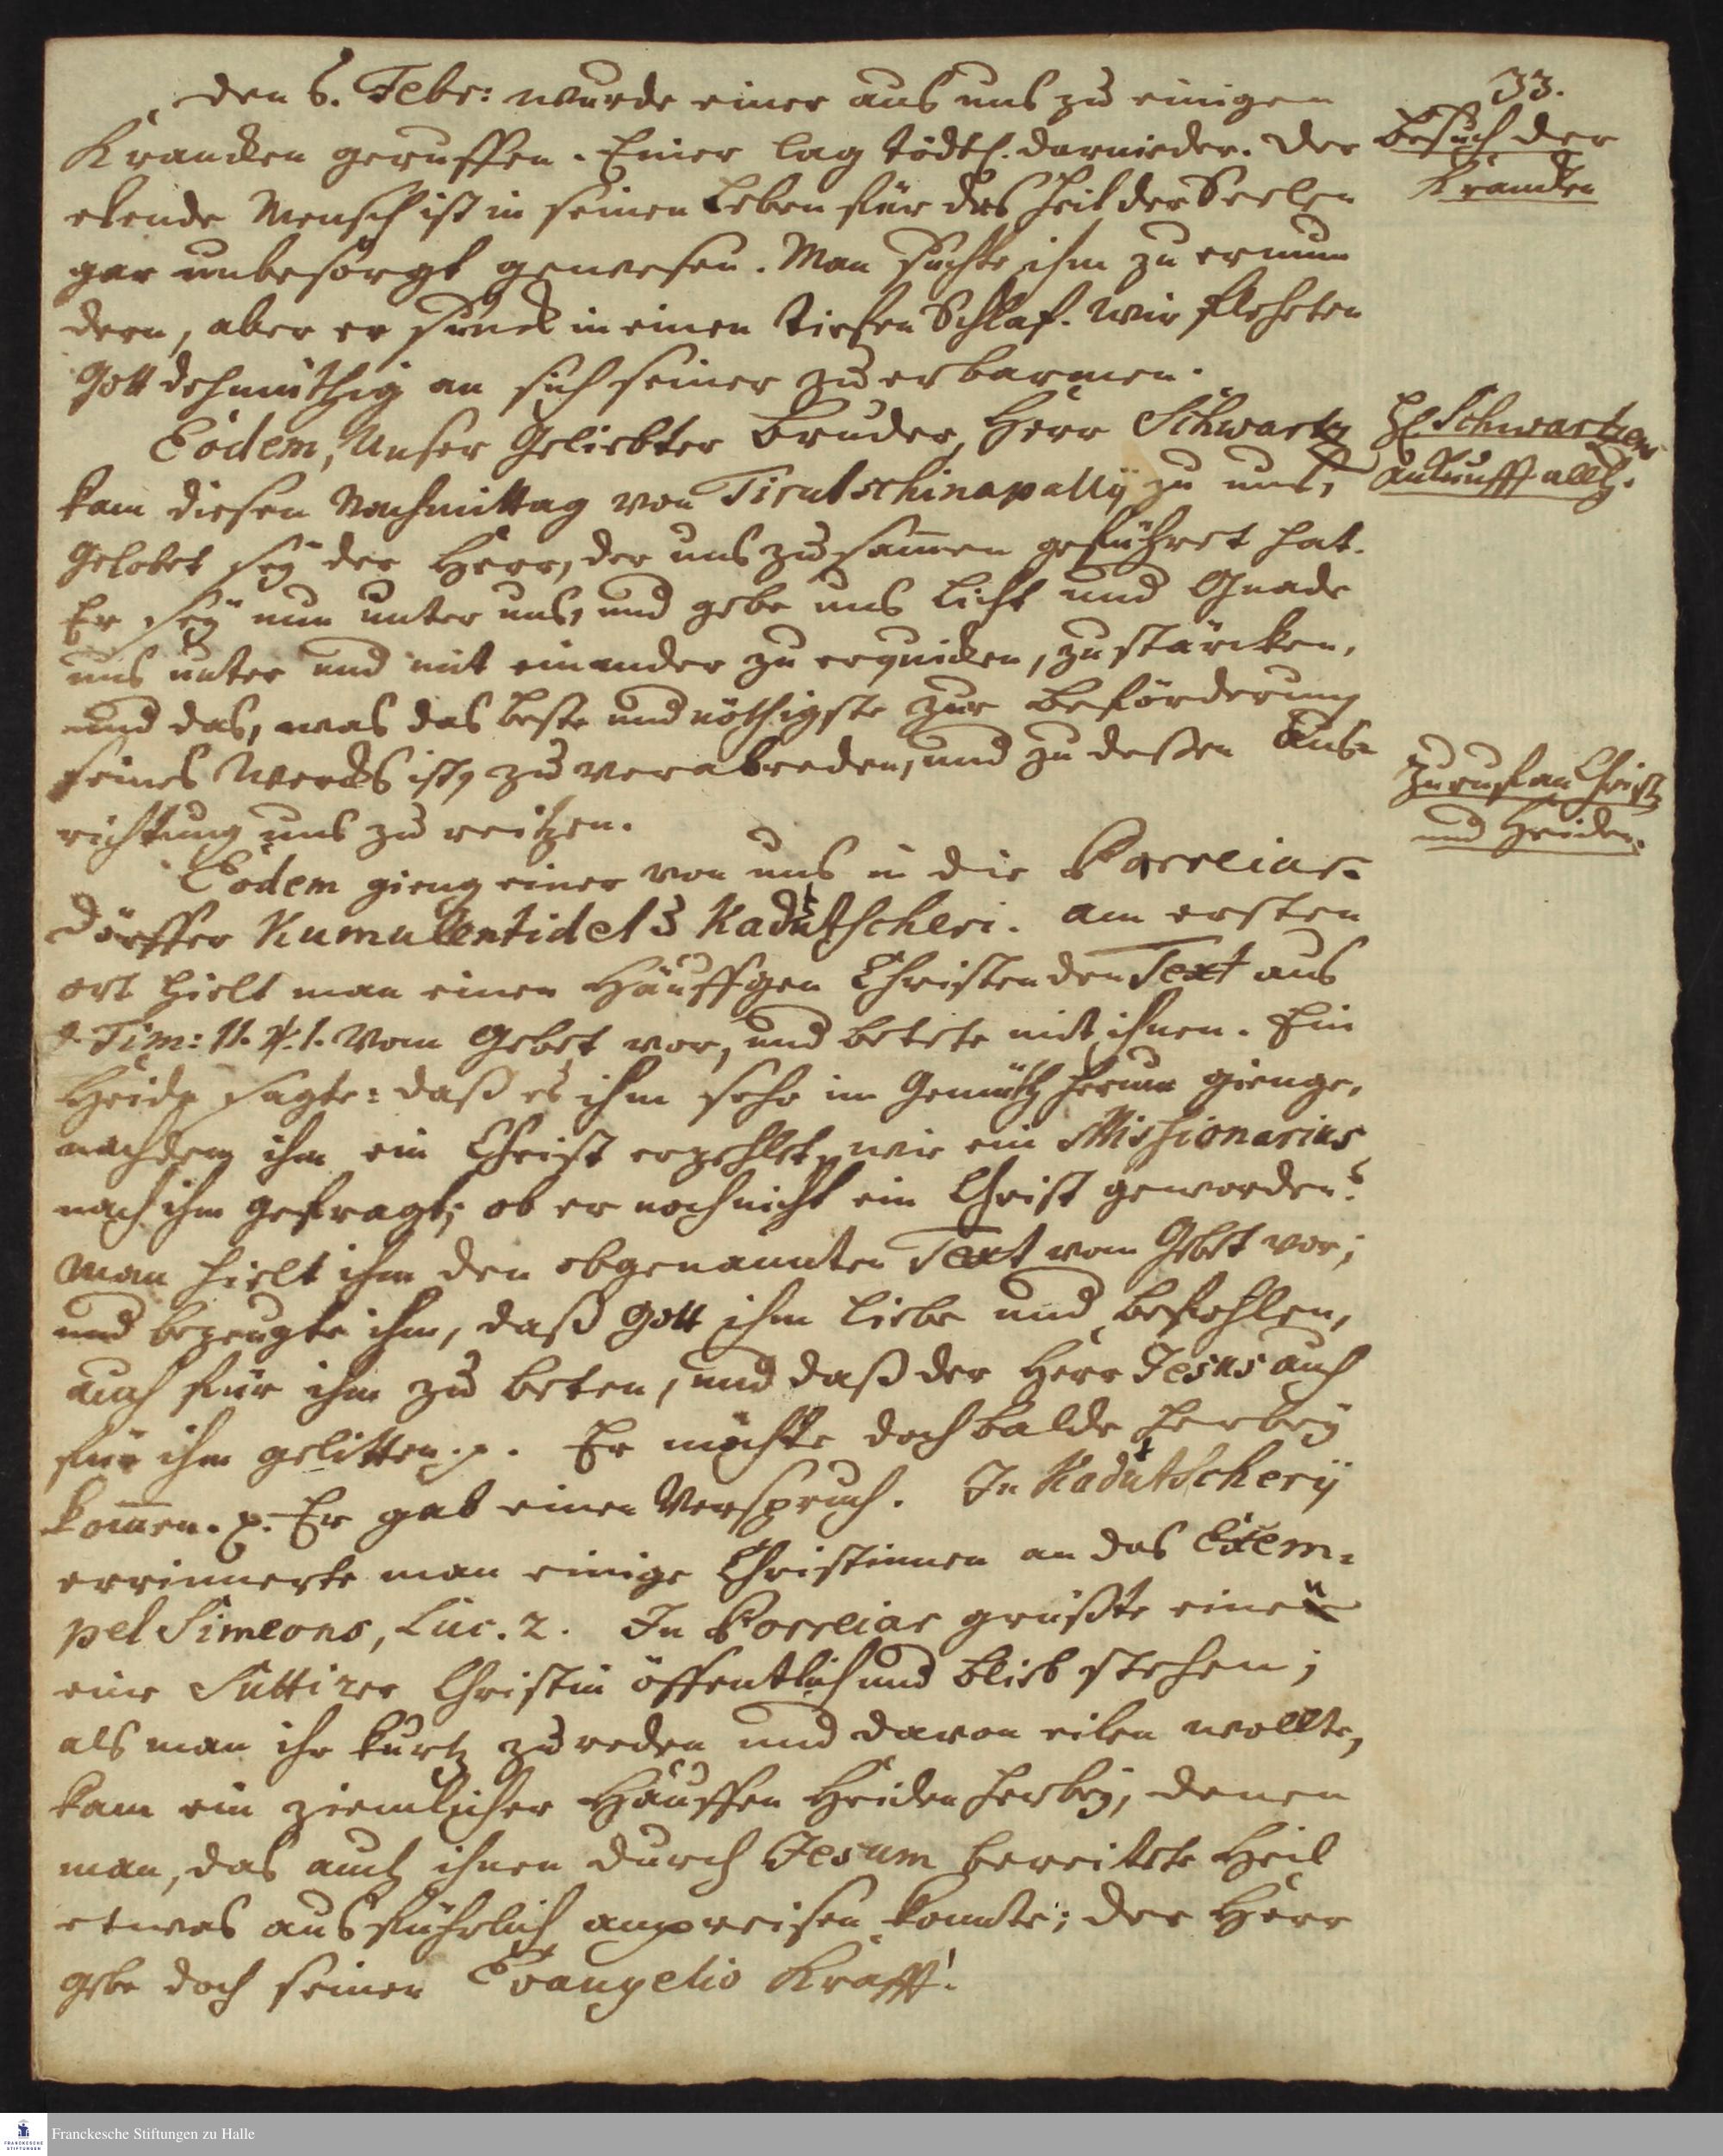 33.
den 6. Febr: wurde einer aus uns zu einigen
Krancken geruffen. Einer lag tödtl. darnieder. Der
elende Mensch ist in seinen Leben für das Heil der Seelen
gar unbesorgt gewesen. Man suchte ihm zu ermun
dern, aber er sunck in einen tiefen Schlaf. Wir fleheten
Gott dehmüthig an sich seiner zu erbarmen.
Eodem, Unser Geliebter Bruder, Herr Schwartz
kam diesen Nachmittag von Tirutschinapally zu uns,
Gelobet sey der Herr, der uns zusam̅en geführet hat.
Er sey nun unter uns, und gebe uns Licht und Gnade
uns unter und mit einander zu erquicken, zu stärcken,
und das, was das beste und nöthigste zur Beförderung
seines Wercks ist, zu verabreden, und zu deßen Aus-
richtung uns zu reitzen.
Eodem gieng einer von uns in die Porreiar-
Dörffer Kumulentidel 3 Kaduttscheri. Am ersten
ort hielt man einen Häuffgen Christen den Text aus
1. Tim: II. v. 1. vom Gebet vor, und betete mit ihnen. Ein
Heide sagte: daß es ihm sehr im Gemüth herum gienge,
nachdem ihm ein Christ erzehlet, wie ein Missionarius
nach ihm gefragt; ob er noch nicht ein Christ geworden?
Man hielt ihm den obgenannten Text vom Gebet vor;
und bezeugte ihm, daß Gott ihm liebe und befohlen,
auch für ihm zu beten, und daß der Herr Jesus auch
für ihm gelitten. p. Er möchte doch balde herbey
kom̅en. p. Er gab einen Verspruch. In Kaduttschery
errinnerte man einige Christinnen an das Exem-
pel Simeons, Luc. 2. In Porreiar grüßte einen
eine Suttirer Christin öffentlich und blieb stehen;
als man ihr kurtz zureden und davon eilen wollte,
kam ein ziemlicher Hauffen Heiden herbey, denen
man, das auch ihnen durch Jesum bereitete Heil
etwas ausführlich anpreisen konnte; der Herr
gebe doch seinen Evangelio Krafft!
Besuch der
Krancken
H. Schwartzens
Ankunfft allh.
Zuruf an Christ.
und Heiden.
Franckesche Stiftungen zu Halle